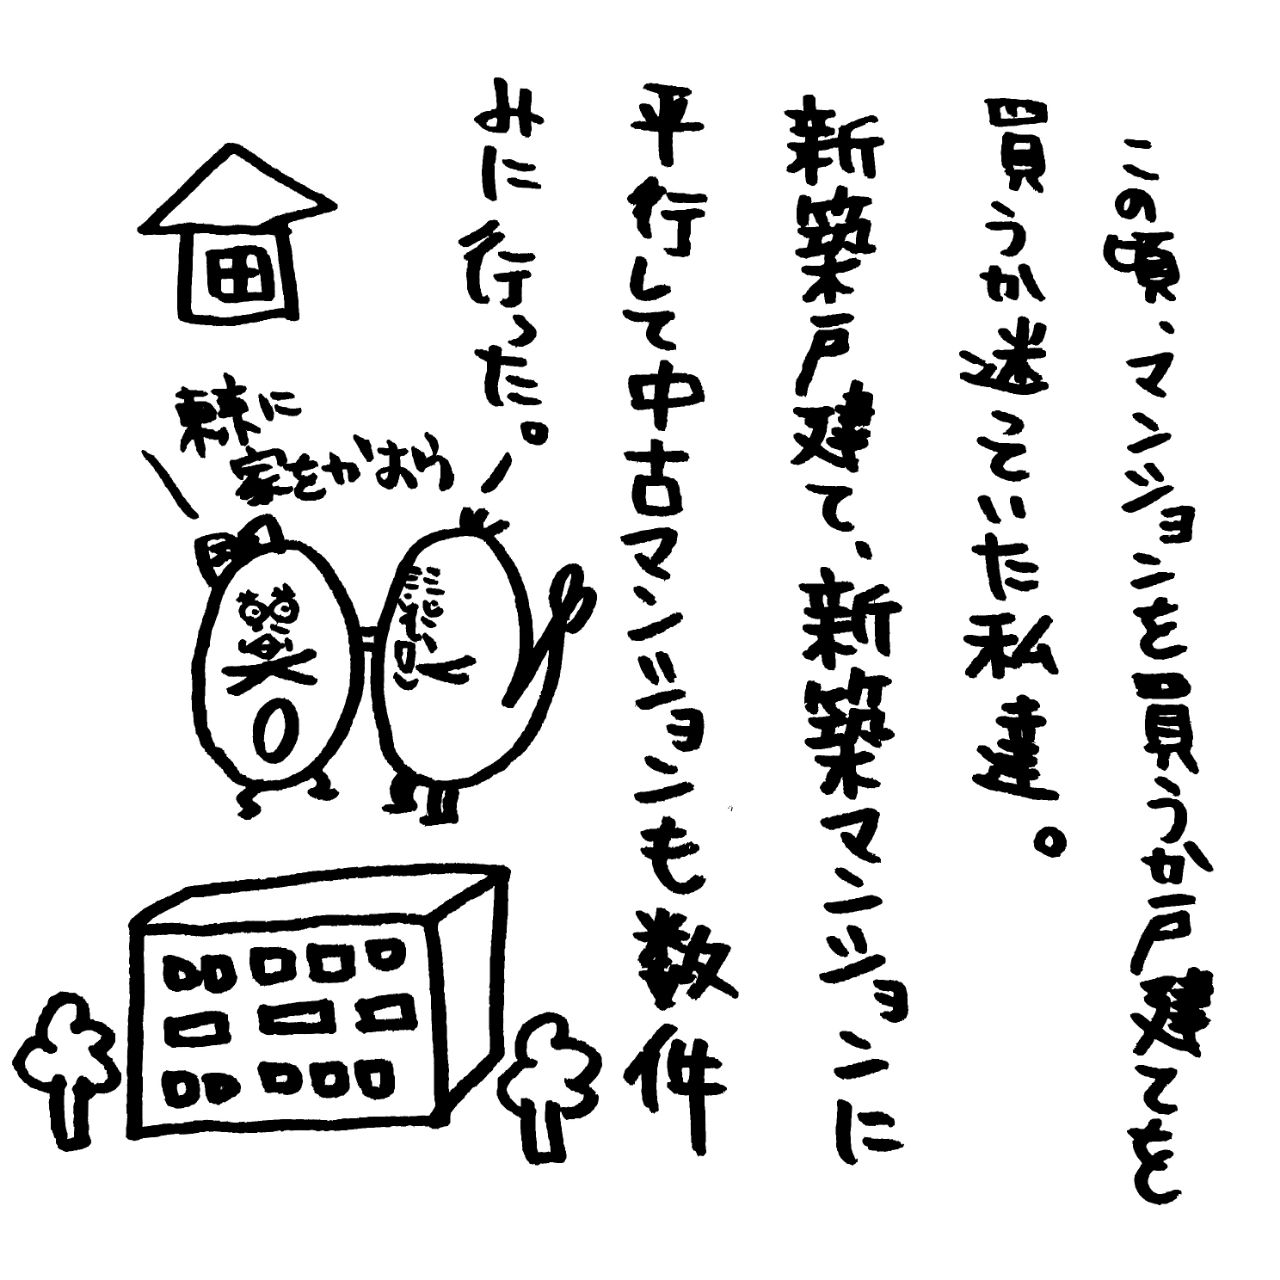 この頃、マンションを買うか戸建てを
買うか迷っていた私達。
新築戸建て、新築マンションに
平行して中古マンションも数件
みに行った。
棘に
家をがおう